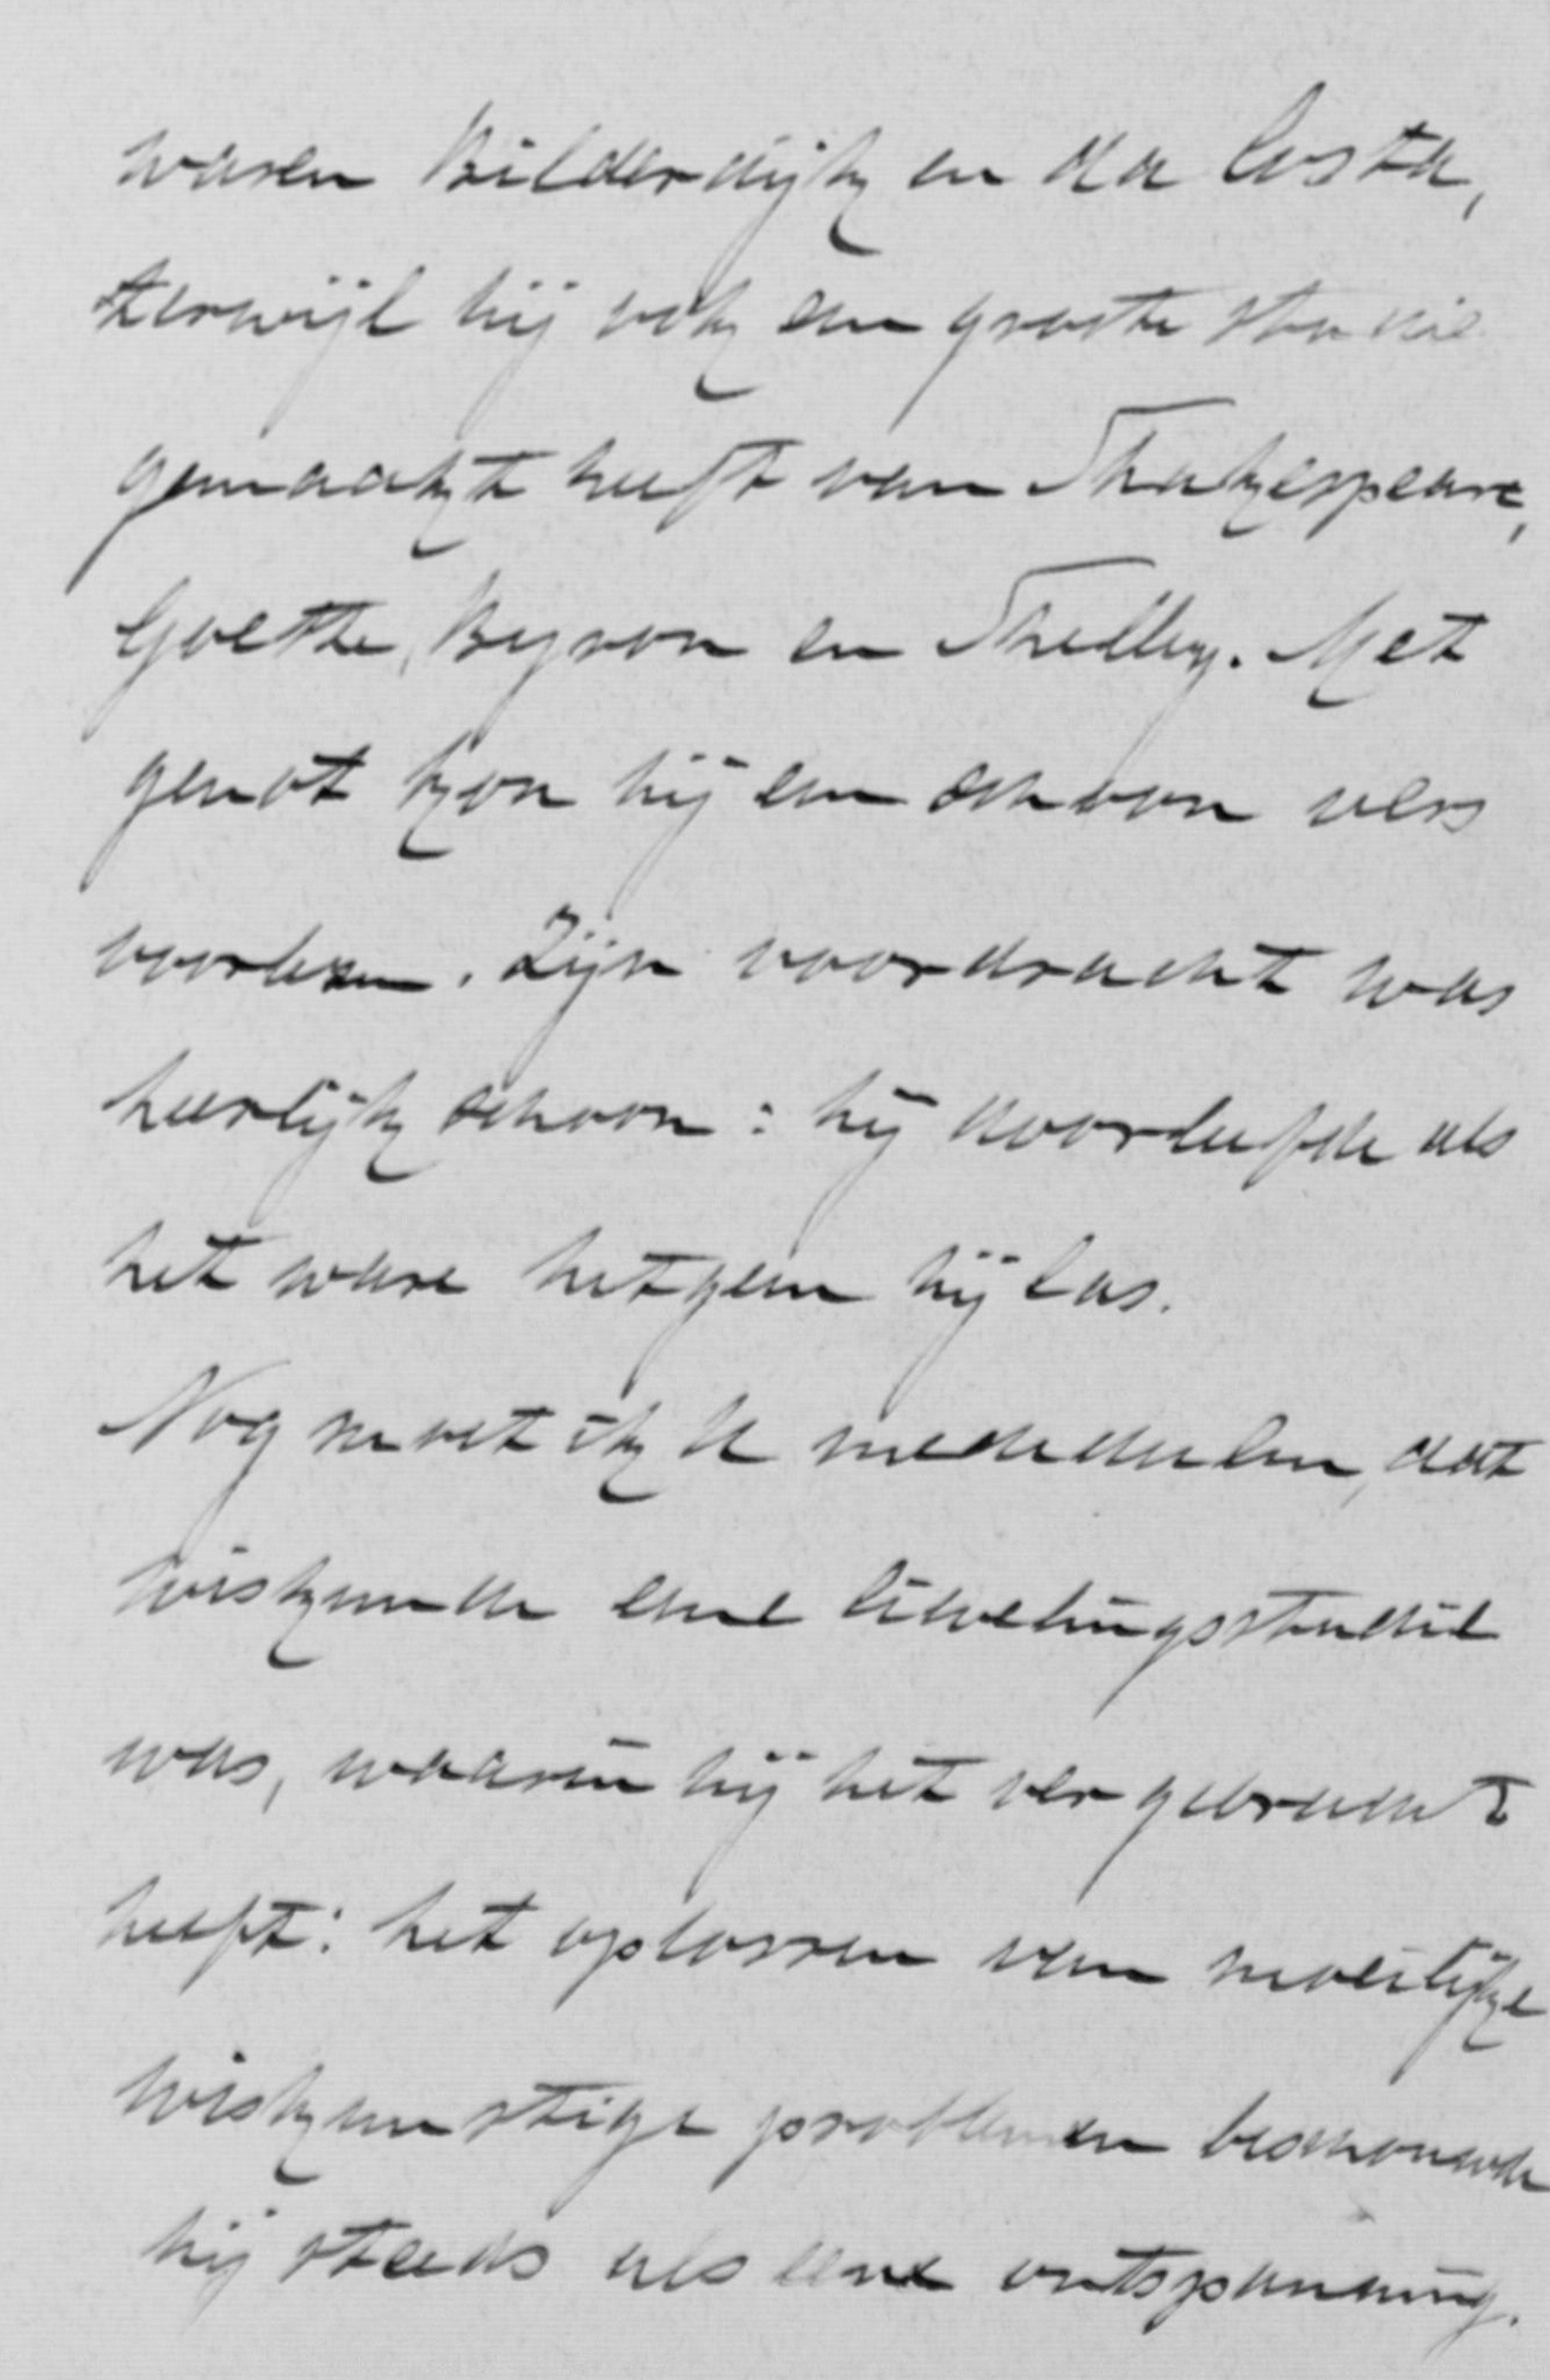 waren Bilderdijk en da Costa,
terwijl hij ook een groote studie
gemaakt heeft van Shakespeare,
Goethe, Byron en Shelley. Met
genot kon hij een schoon vers
voorlezen. Zijn voordracht was
heerlijk schoon: hij doorleefde als
het ware hetgeen hij las.
Nog moet ik U mededeelen, dat
wiskunde eene lievelingsstudie
was, waarin hij het ver gebracht
heeft: het oplossen van moeilijke
wiskunstige problemen beschouwde
hij steeds als eene ontspanning.